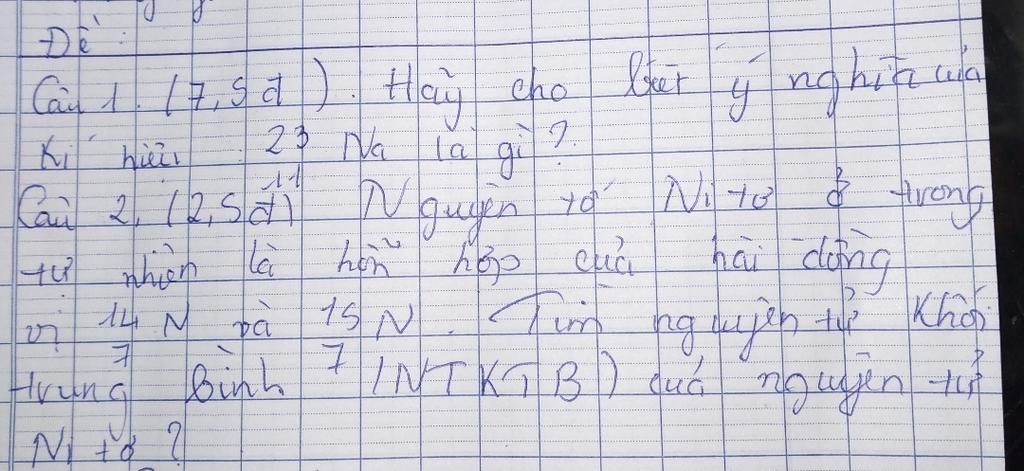 Đề:
Câu 1. (7,5đ). Hãy cho biết ý nghĩa của
Kí hiệu: 23 Na là gì?
11
Câu 2, (2,5đ) Nguyên tố Ni tơ ở trong
tự nhiên là hỗn hợp của hai đồng
vị 14 N và 15 N. Tìm nguyên tử khối
7 7
trung bình (NTKTB) của nguyên tử
Ni tơ?